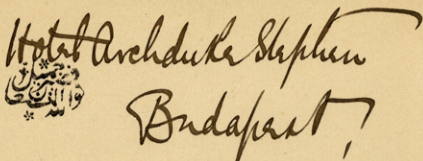 Hotel Archduke Stephen
Budapest,